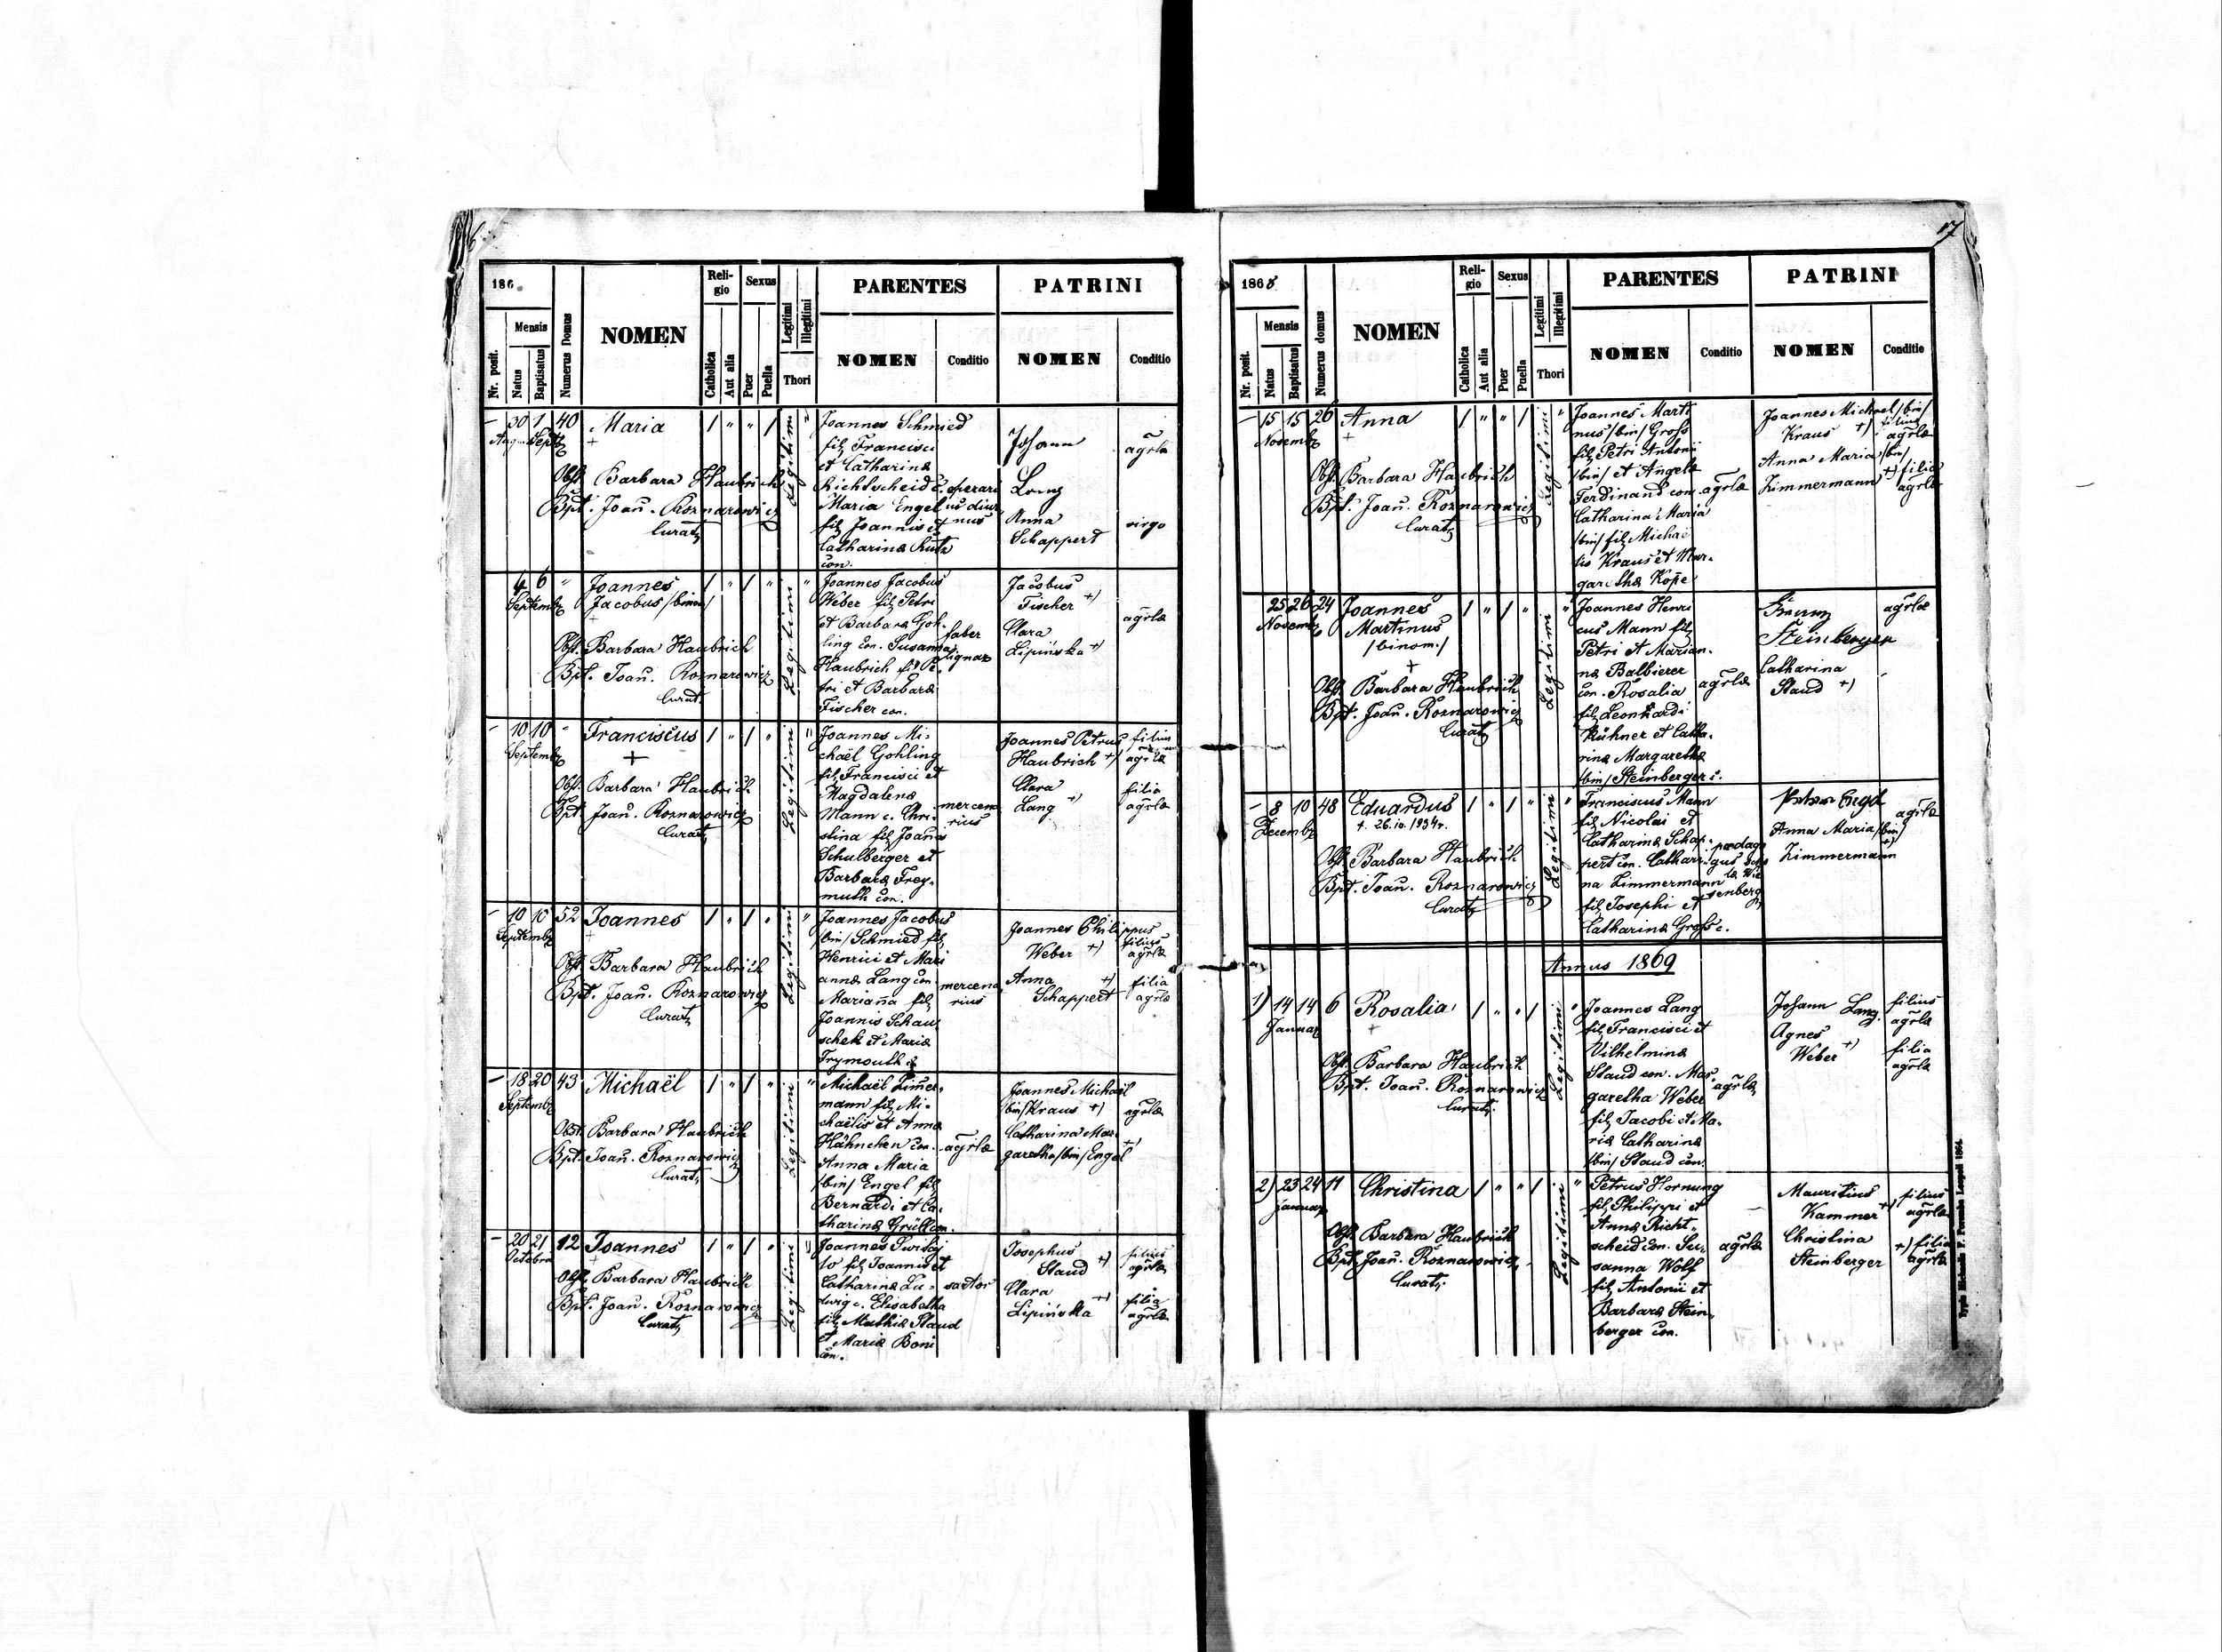 186
Reli-
gio
Sexus
Legitimi
Illegitimi
PARENTES
PATRINI
Nr. posit.
Mensis
Natus
Baptisatus
Numerus Domus
NOMEN
Catholica
Aut alia
Puer
Puella
Thori
NOMEN
Conditio
NOMEN
Conditio
- 30 1 40 Maria / " " / Legitimi "
Aug. Septb
Obst. Barbara Haubrich
Bpt. Joañ. Roznarowicz
Curat
Joannes Schmied
fil. Francisci
et Catharina
Richtscheid c.
Maria Engel
fil. Joannis et
Catharina Rutz
con.
operari
us diur
nus
Johann
Lang
Anna
Schappert
agrla
virgo
4 6 " Joannes / " / " Legitimi "
Septemb Jacobus /binom/
Obst. Barbara Haubrich
Bpt. Joañ. Roznarowicz
Curat.
Joannes Jacobus
Weber fil. Petri
et Barbara Goh-
ling con. Susanna
Haubrich fil. Pe-
tri et Barbara
Fischer con.
faber
lignar
Jacobus
Fischer +)
Clara
Lipińska +)
agrla
- 10 10 - Franciscus / " / " Legitimi "
Septemb +
Obst. Barbara Haubrich
Bpt. Joañ. Roznarowicz
Curat
Joannes Mi-
chaël Gohling
fil. Francisci et
Magdalena
Mann c. Chri-
stina fil. Joanis
Schulberger et
Barbara Frey-
muth con.
mercena
rius
Joannes Petrus
Haubrich +)
Clara
Lang +)
filius
agrla
filia
agrla
- 10 10 52 Joannes / " / " Legitimi "
Septemb
Obst. Barbara Haubrich
Bpt. Joañ. Roznarowicz
Curat
Joannes Jacobus
/bin/ Schmied fil.
Henrici et Mari
anna Lang con.
Mariaña fil.
Joannis Schau
schek et Maria
Frymouth c.
mercena
rius
Joannes Philippus
Weber +)
Anna +)
Schappert
filius
agrla
filia
agrla
- 18 20 43 Michaël / " / " Legitimi "
Septemb
Obst. Barbara Haubrich
Bpt. Joañ. Roznarowicz
Curat
Michaël Zimer-
mann fil. Mi-
chaëlis et Anna
Hähnchen con.
Anna Maria
/bin/ Engel fil.
Bernardi et Ca-
tharina Grüll con.
agrla
Joannes Michaël
/bin/ Kraus +)
Catharina Mar-
garetha /bin/ Engel +)
agrla
- 20 21 12 Joannes / " / " Legitimi "
Octobra
Obst. Barbara Haubrich
Bpt. Joañ. Roznarowicz
Curat
fil. Joannis et
Catharina Lu-
dwig c. Elisabetha
fil. Mathia Staud
et Maria Boni
con.
sartor
Josephus
Staud +)
Clara +)
Lipińska
filius
agrla
filia
agrla
17
1868
Reli-
gio
Sexus
Legitimi
Illegitimi
PARENTES
PATRINI
Nr. posit.
Mensis
Natus
Baptisatus
Numerus domus
NOMEN
Catholica
Aut alia
Puer
Puella
Thori
NOMEN
Conditio
NOMEN
Conditio
- 15 15 26 Anna / " " / Legitimi "
Novemb +
Obst. Barbara Haubrich
Bpt. Joañ. Roznarowicz
Curat
Joannes Marti
nus /bin/ Gross
fil. Petri Antonii
/bin/ et Angela
Ferdinand con.
Catharina Maria
/bin/ fil. Michae
lis Kraus et Mar-
garetha Kope
agrla
Joannes Michael /bin/
Kraus +)
Anna Maria /bin/
Zimmermann +)
filius
agrla
filia
agrla
25 26 24 Joannes / " / " Legitimi "
Novemb Martinus
/binom./
+
Obst. Barbara Haubrich
Bpt. Joañ. Roznarowicz
Curat
Joannes Henri
cus Mann fil.
Petri et Marian-
na Balbierer
con. Rosalia
fil. Leonhardi
Kühner et Catha-
rina Margaretha
/bin/ Steinberger c.
agrla
Franz
Steinberger
Catharina
Staud +)
agrla
- 8 10 48 Eduardus / " / " Legitimi "
Decemb +. 26.10.1934r.
Obst. Barbara Haubrich
Bpt. Joañ. Roznarowicz
Curat
Franciscus Mann
fil. Nicolai et
Catharina Schap-
pert con. Cathari-
na Zimmermann
fil. Josephi et
Catharina Gross c.
pædago
gus
senberg
Peter Engel
Anna Maria /bin/
Zimmermann +)
agrla
Annus 1869
1) 14 14 6 Rosalia / " " / Legitimi "
Januar +
Obst. Barbara Haubrich
Bpt. Joañ. Roznarowicz
Curat.
Joannes Lang
fil. Francisci et
Vilhelmina
Staud con. Mar-
garetha Weber
fil. Jacobi et Ma-
ria Catharina
/bin/ Staud con.
agrla
Johann Lang
Agnes
Weber +)
filius
agrla
filia
agrla
2) 23 24 11 Christina / " " / Legitimi "
Januar
Obst. Barbara Haubrich
Bpt. Joañ. Roznarowicz
Curat.
Petrus Hornung
fil. Philippi et
Anna Richt-
scheid con. Su-
sanna Wolf
fil. Antonii et
Barbara Stein-
berger con.
agrla
Mauritius
Kammer +)
Christina
Steinberger +)
filius
agrla
filia
agrla